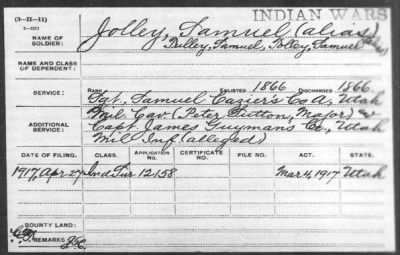 INDIAN WARS
(3-H-11)
NAME OF SOLDIER: Jolley, Samuel (alias)
Dulley, Samuel, Polley, Samuel (alias)
NAME AND CLASS OF DEPENDENT:
SERVICE: RANK ENLISTED 1866 DISCHARGED 1866
Sgt. Samuel Cazier's Co A, Utah
ADDITIONAL SERVICE: Mil Cav (Peter Sutton, Major) &
Capt. James Guymans Co, Utah
Mil Inf. (alleged)
DATE OF FILING. CLASS. APPLICATION NO. CERTIFICATE NO. FILE NO. ACT. STATE.
1917, Apr 27 Ind Sur 12158 Mar 4, 1917 Utah
COUNTY LAND:
REMARKS